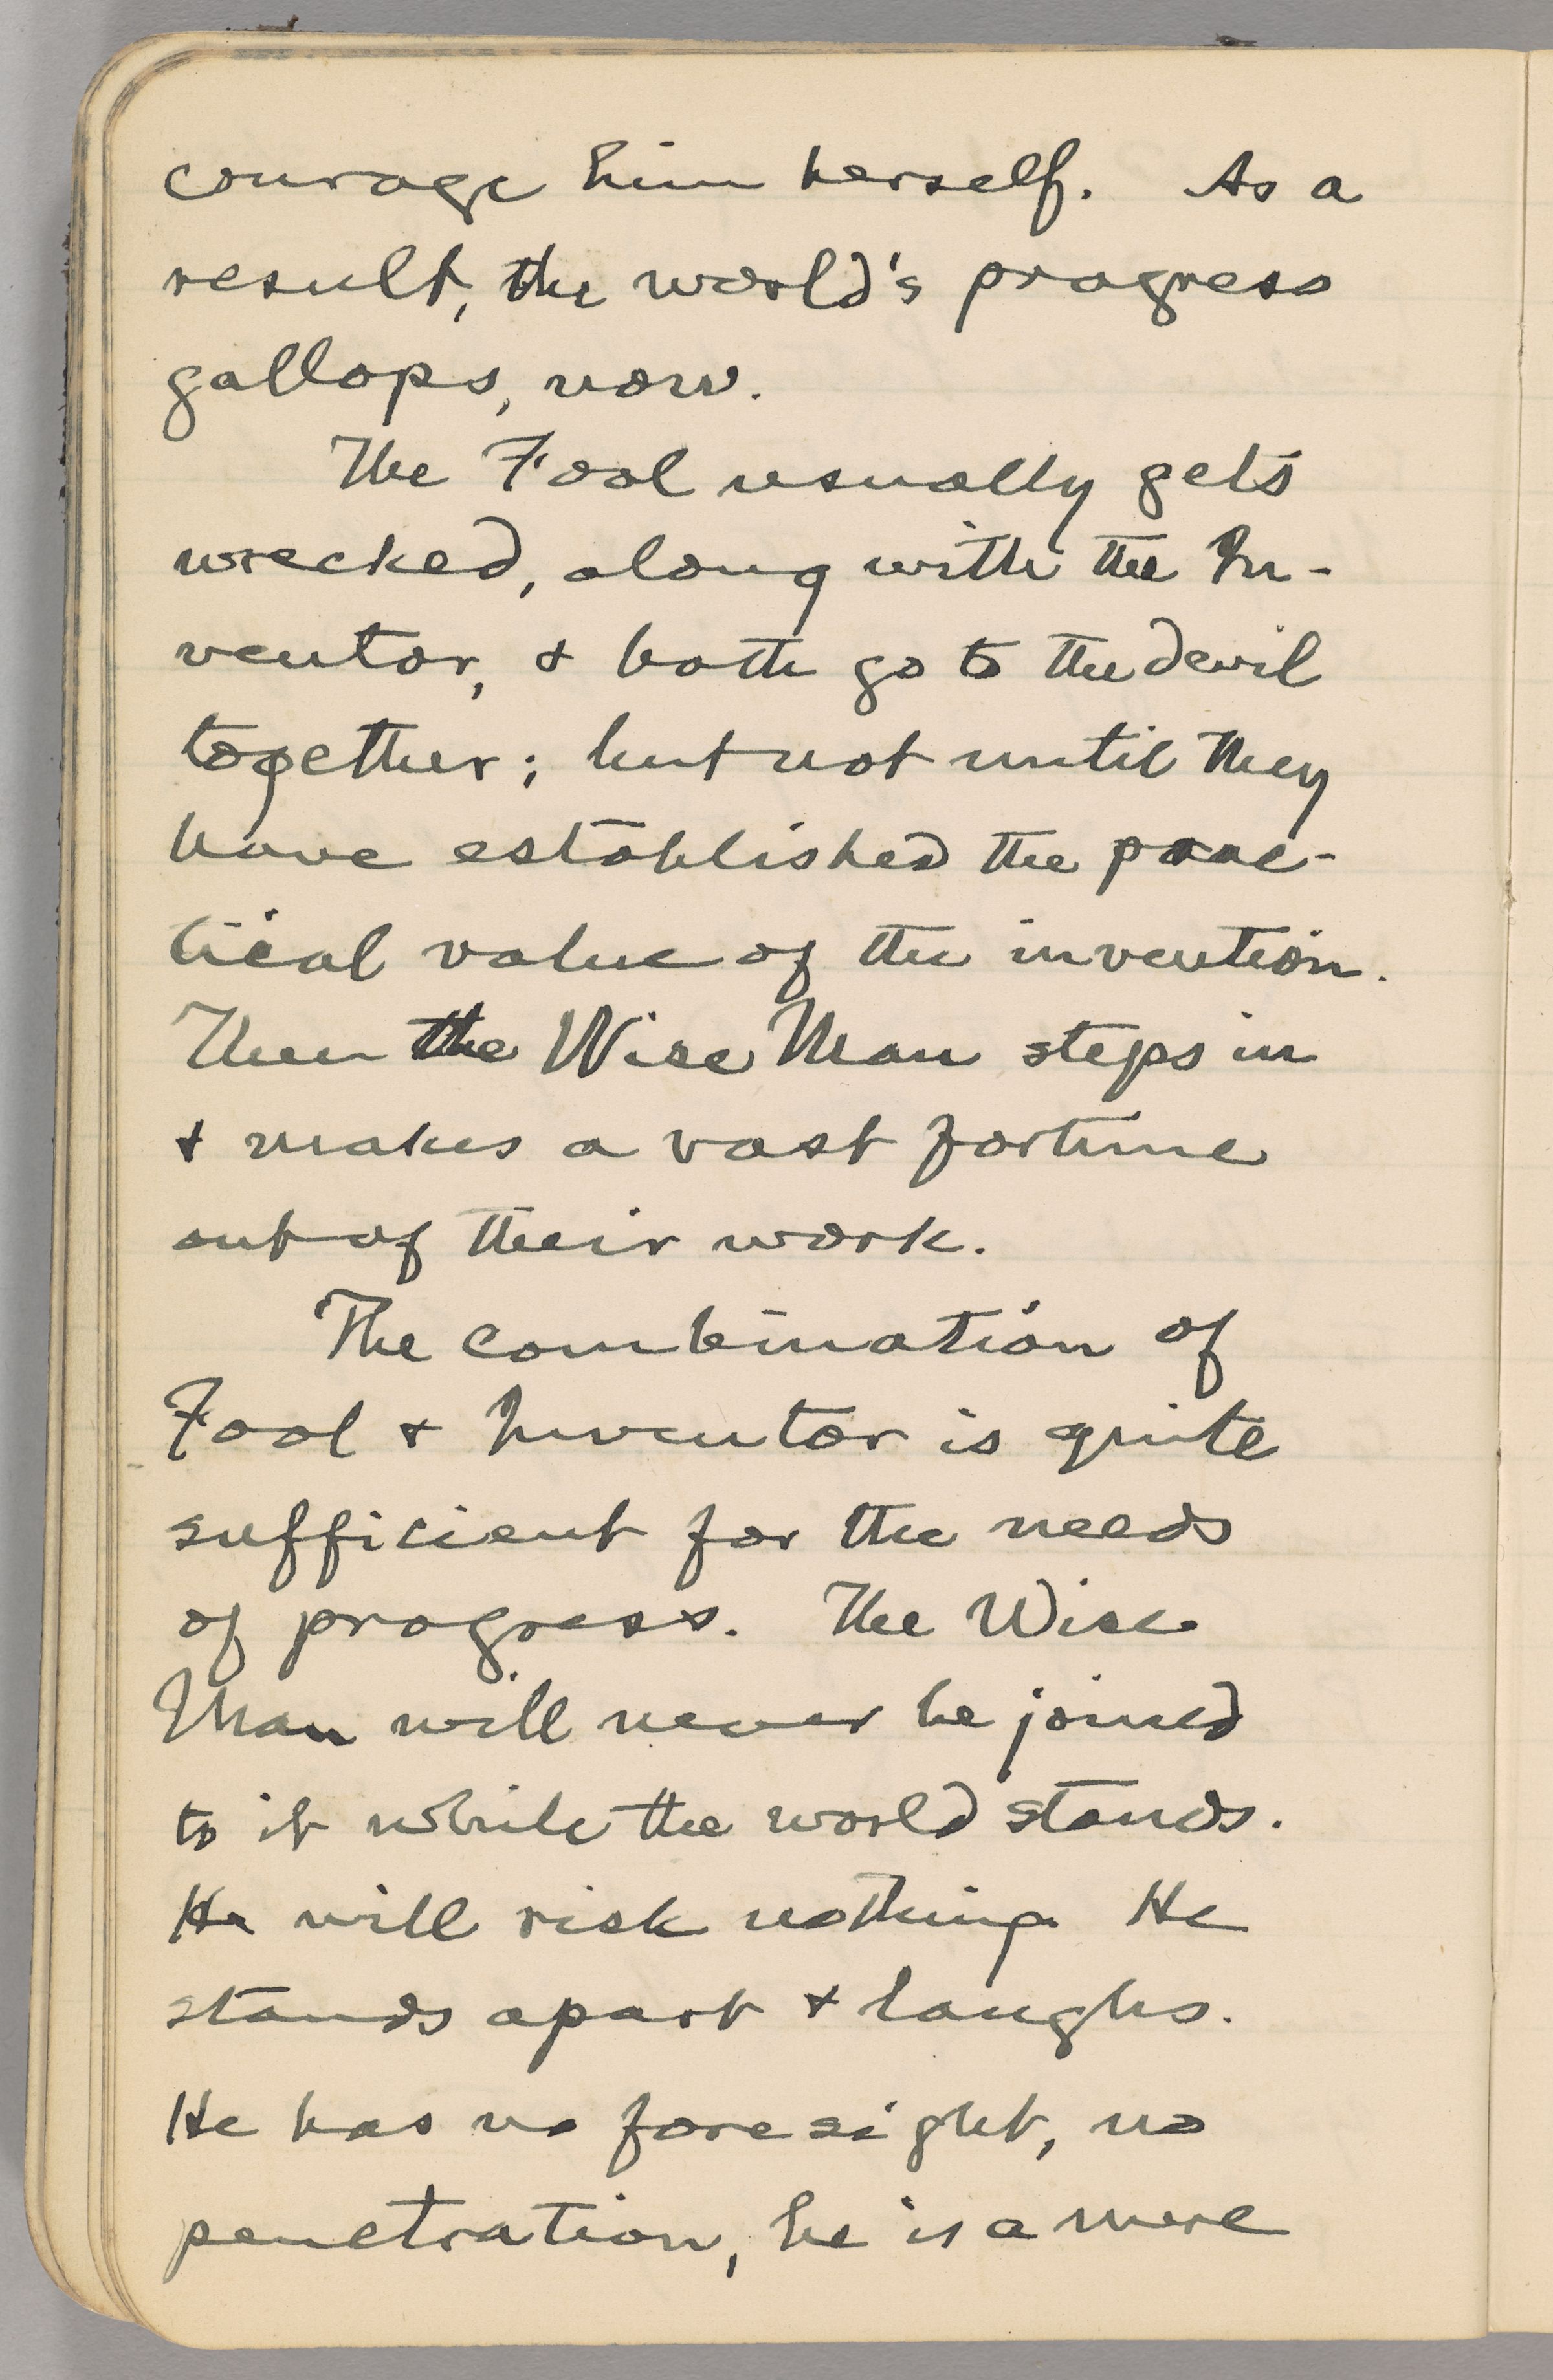 courage him herself. As a
result, the world's progress
gallops, now.
The Fool usually gets
wrecked, along with the In-
ventor, & both go to the devil
together; but not until they
have established the prac-
tical value of the invention.
Then the Wise Man steps in
& makes a vast fortune
out of their work.
The combination of
Fool & Inventor is quite
sufficient for the needs
of progress. The Wise
Man will never be joined
to it while the world stands.
He will risk nothing. He
stands apart & laughs.
He has no foresight, no
penetration, he is a mere